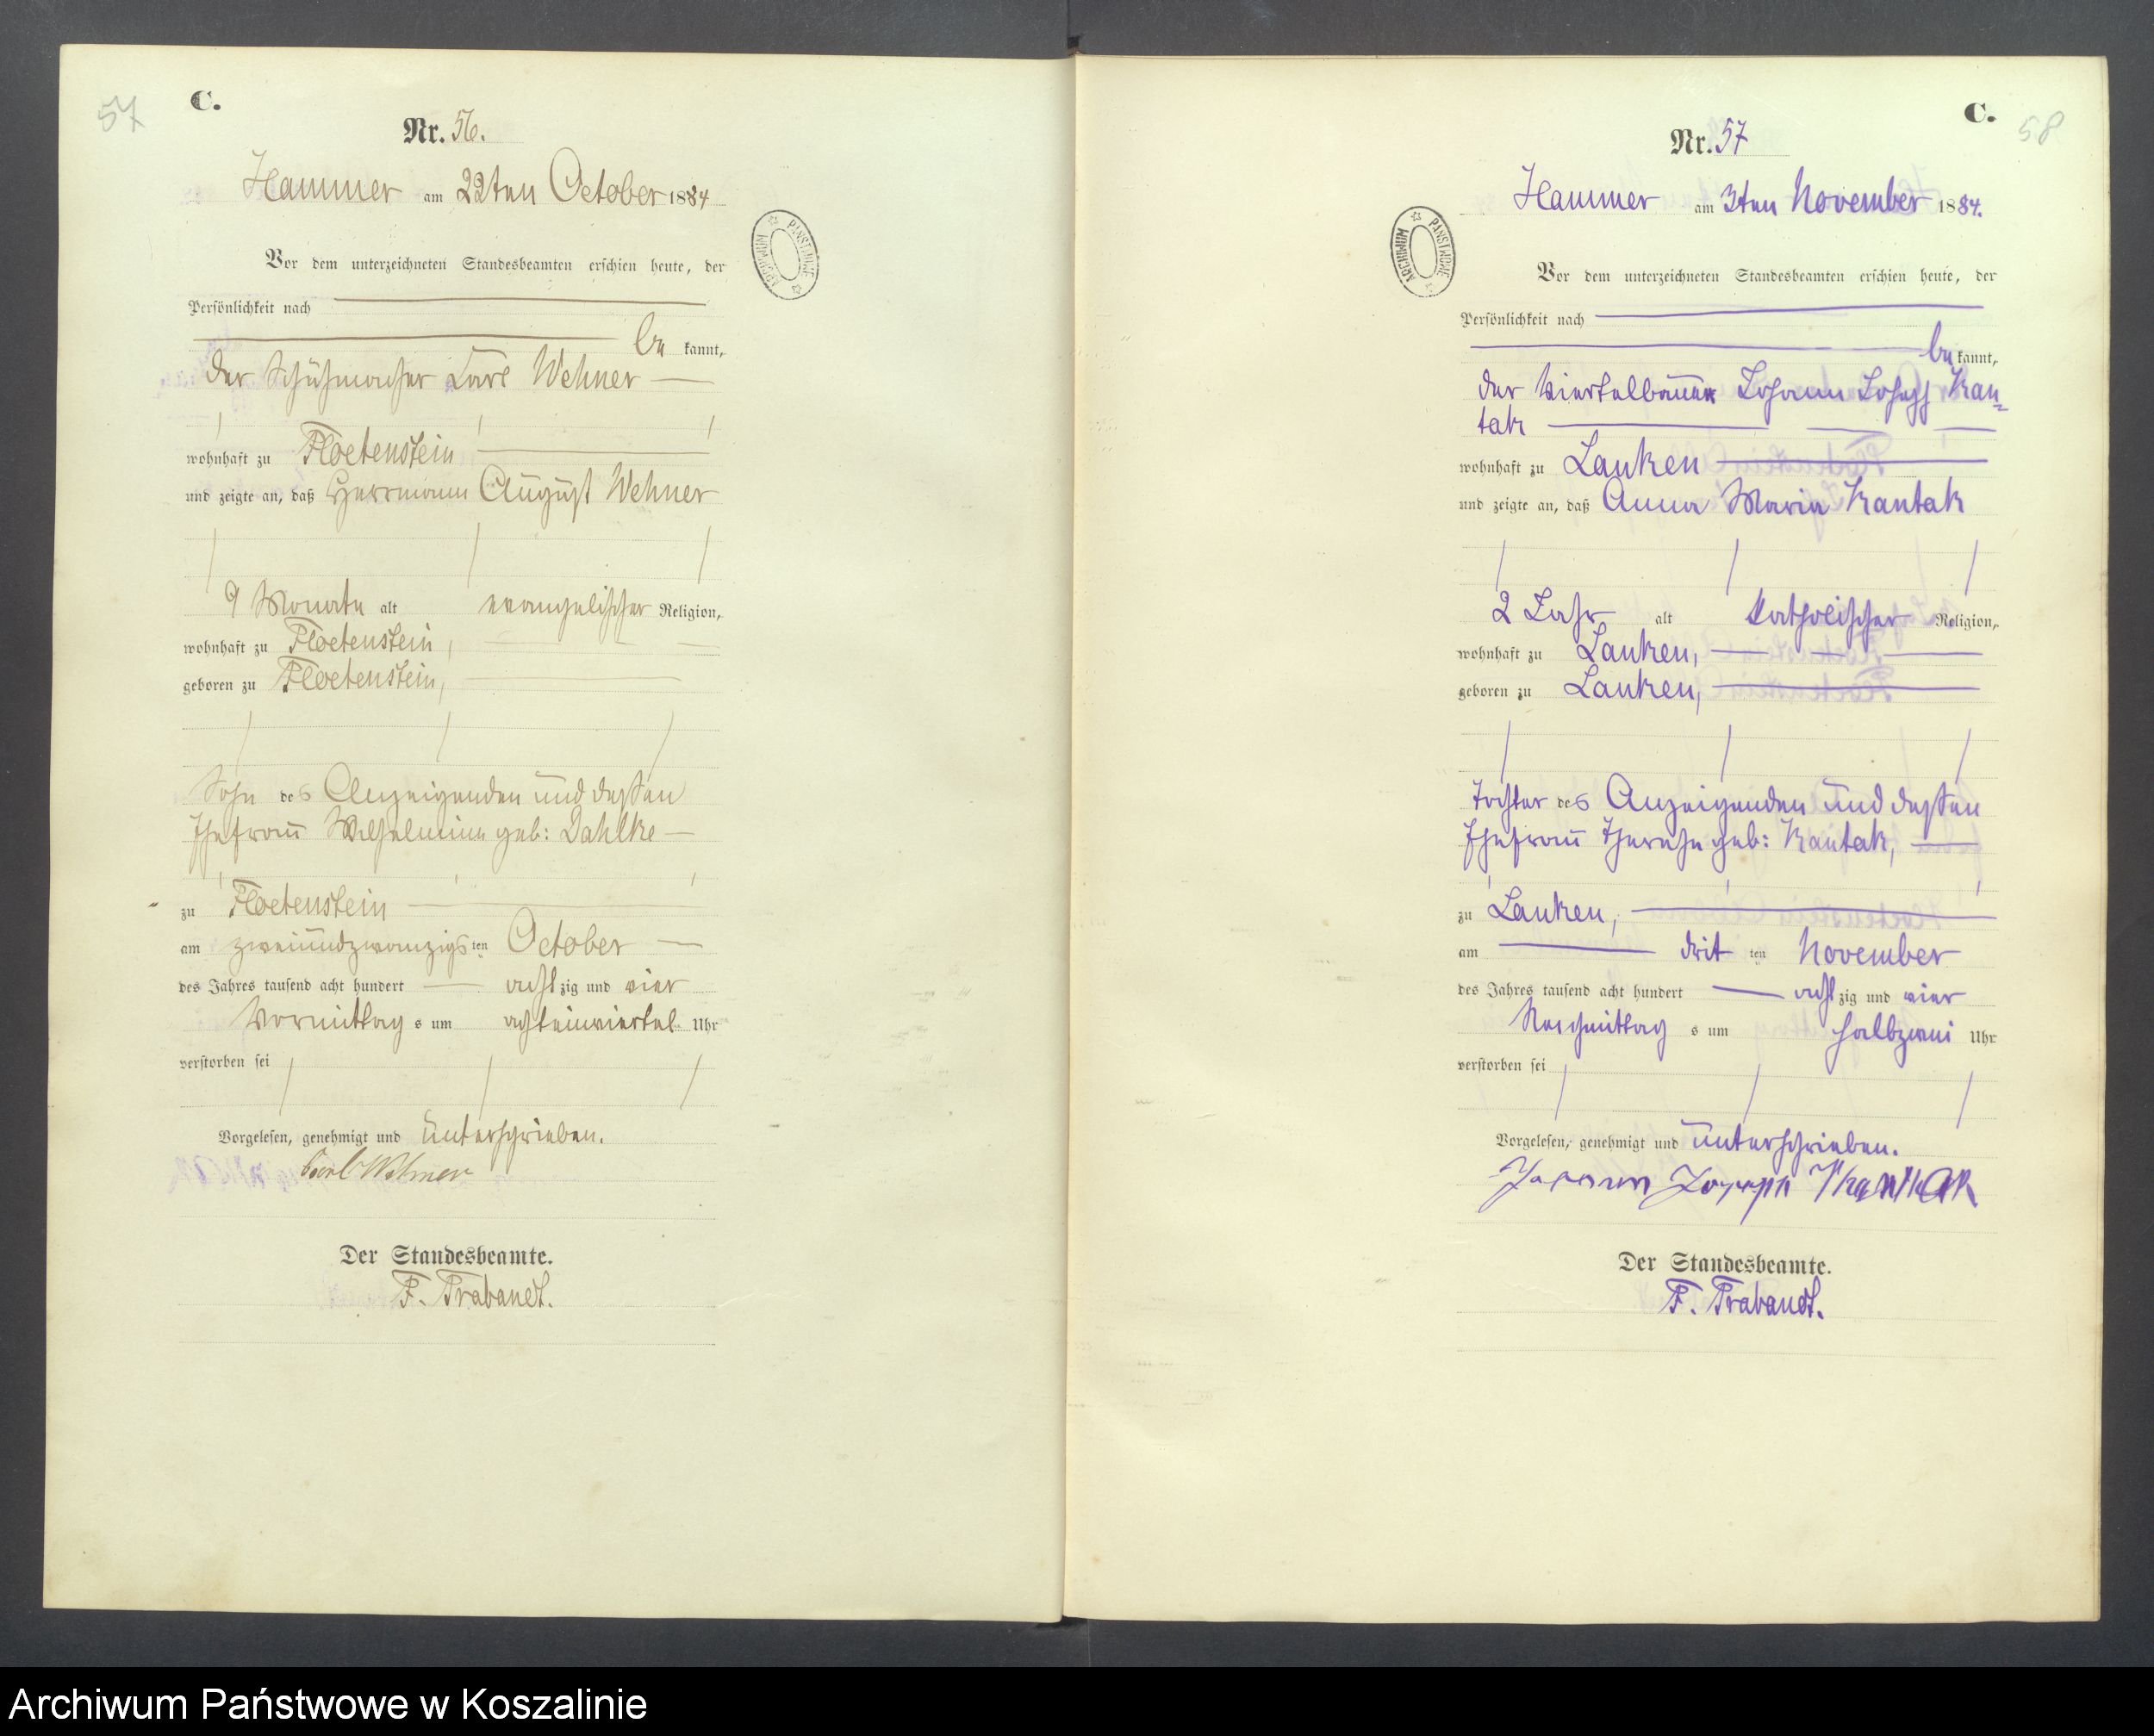 57
C.
Nr. 56.
Hammer am 22ten October 1884
Vor dem unterzeichneten Standesbeamten erschien heute, der
Persönlichkeit nach
be kannt,
der Schuhmacher Carl Wehner
wohnhaft zu Floetenstein
und zeigte an, daß Herrmann August Wehner
9 Monate alt evangelischer Religion,
wohnhaft zu Floetenstein,
geboren zu Floetenstein,
Sohn des Anzeigenden und dessen
Ehefrau Wilhelmine geb: Dahlke
zu Floetenstein
am zweiundzwanzigsten October
des Jahres tausend acht hundert achtzig und vier
Vormittags um achteinviertel Uhr
verstorben sei
Vorgelesen, genehmigt und unterschrieben.
Carl Wehner
Der Standesbeamte.
F. Trabandt.
ARCHIWUM PAŃSTWOWE
C.
58
Nr. 57
Hammer am 3ten November 1884.
ARCHIWUM PAŃSTWOWE
Vor dem unterzeichneten Standesbeamten erschien heute, der
Persönlichkeit nach
be kannt,
der Viertelbauer Johann Joseph Kan=
tak
wohnhaft zu Lanken
und zeigte an, daß Anna Maria Kantak
2 Jahr alt katholischer Religion,
wohnhaft zu Lanken,
geboren zu Lanken,
Tochter des Anzeigenden und dessen
Ehefrau Therese geb: Kantak,
zu Lanken,
am dritten November
des Jahres tausend acht hundert achtzig und vier
Nachmittags um halbzwei Uhr
verstorben sei
Vorgelesen, genehmigt und unterschrieben.
Johann Joseph Kantak
Der Standesbeamte.
F. Trabandt.
Archiwum Państwowe w Koszalinie